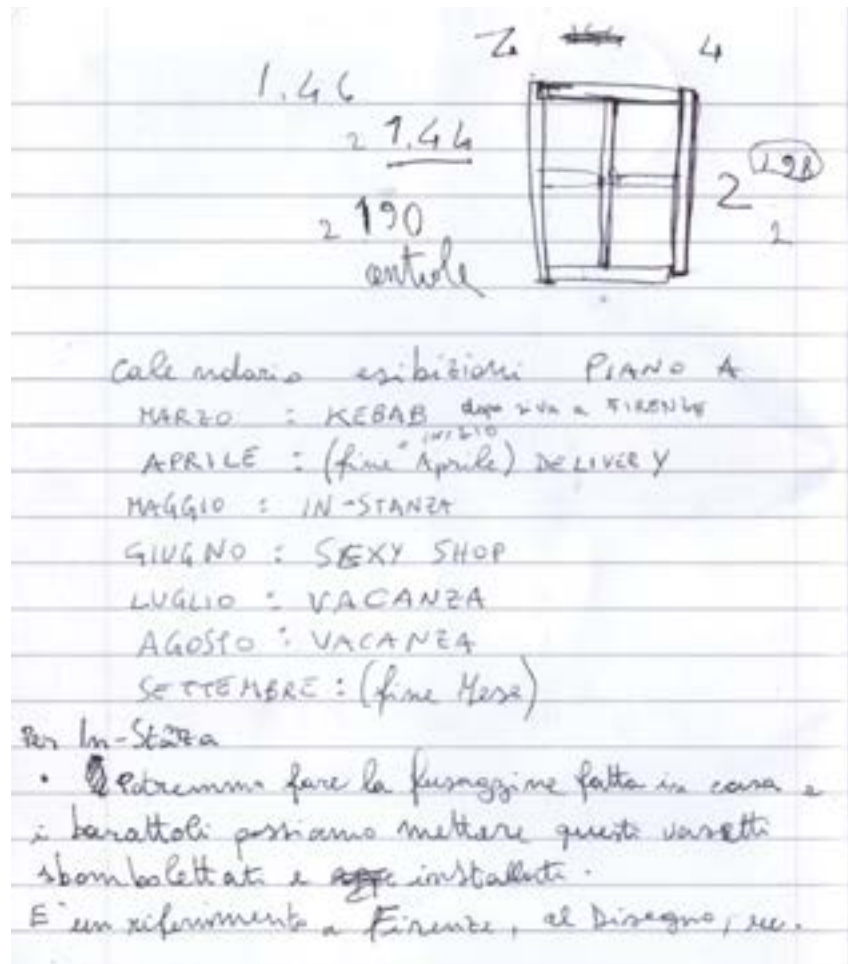 2 4
1.46
2 1.44
198
2
2 190
2
controle
Calendario esibizioni PIANO A
MARZO : KEBAB dopo si va a FIRENZE
INIZIO
APRILE : (fine Aprile) DELIVERY
MAGGIO : IN-STANZA
GIUGNO : SEXY SHOP
LUGLIO : VACANZA
AGOSTO : VACANZA
SETTEMBRE : (fine Mese)
Per In-Stanza
• Potremmo fare la fusaggine fatta in casa e
i barattoli possiamo mettere questi vasetti
sbombolettati e installarti.
E' un riferimento a Firenze, al Disegno,